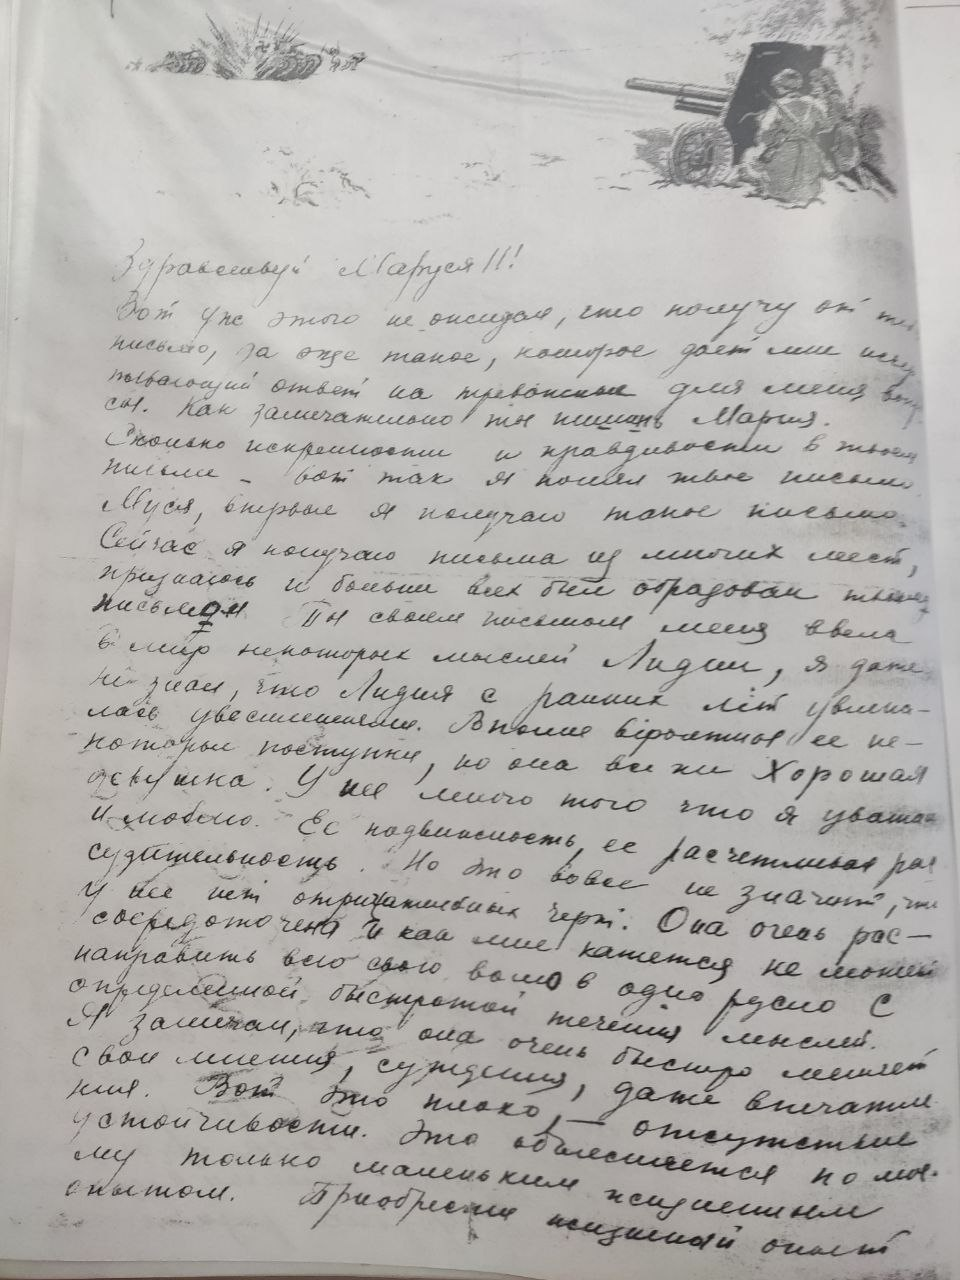 Здравствуй Маруся!!!
Вот уж этого не ожидал, что получу от
письмо, да ещё такое, которое дает мне исчер
пывающий ответ на тревожные для меня вопро
сы. Как замечательно ты пишешь Мария.
Сколько искренности и правдивости в твоем
письме – вот так я понял твое письмо.
Муся, впервые я получаю такое письмо.
Сейчас я получаю письма из многих мест,
признаюсь и больше всех был обрадован твоим
письмом. Ты своем письмом меня ввела
в мир некоторых мыслей Лидии, я даже
не знал, что Лидия с ранних лет увлека-
лась увеселениями. Вполне вероятные ее не-
которые поступки, но она все же Хорошая
девушка. У нее много того что я уважаю
и люблю. Ее подвижность, ее расчетливая рас
судительность. Но это вовсе не значит, что
у нее нет отрицательных черт. Она очень рас-
сосредоточена и как мне кажется не может
направить всю свою волю в одно русло с
определенной быстротой течения мыслей.
Я замечал, что она очень быстро меняет
свои мнения, суждения, даже впечатле
ния. Вот это плохо, – отсутствие
устойчивости. Это объясняется по мое-
му только маленьким жизненным
опытом. Приобретая жизненный опыт